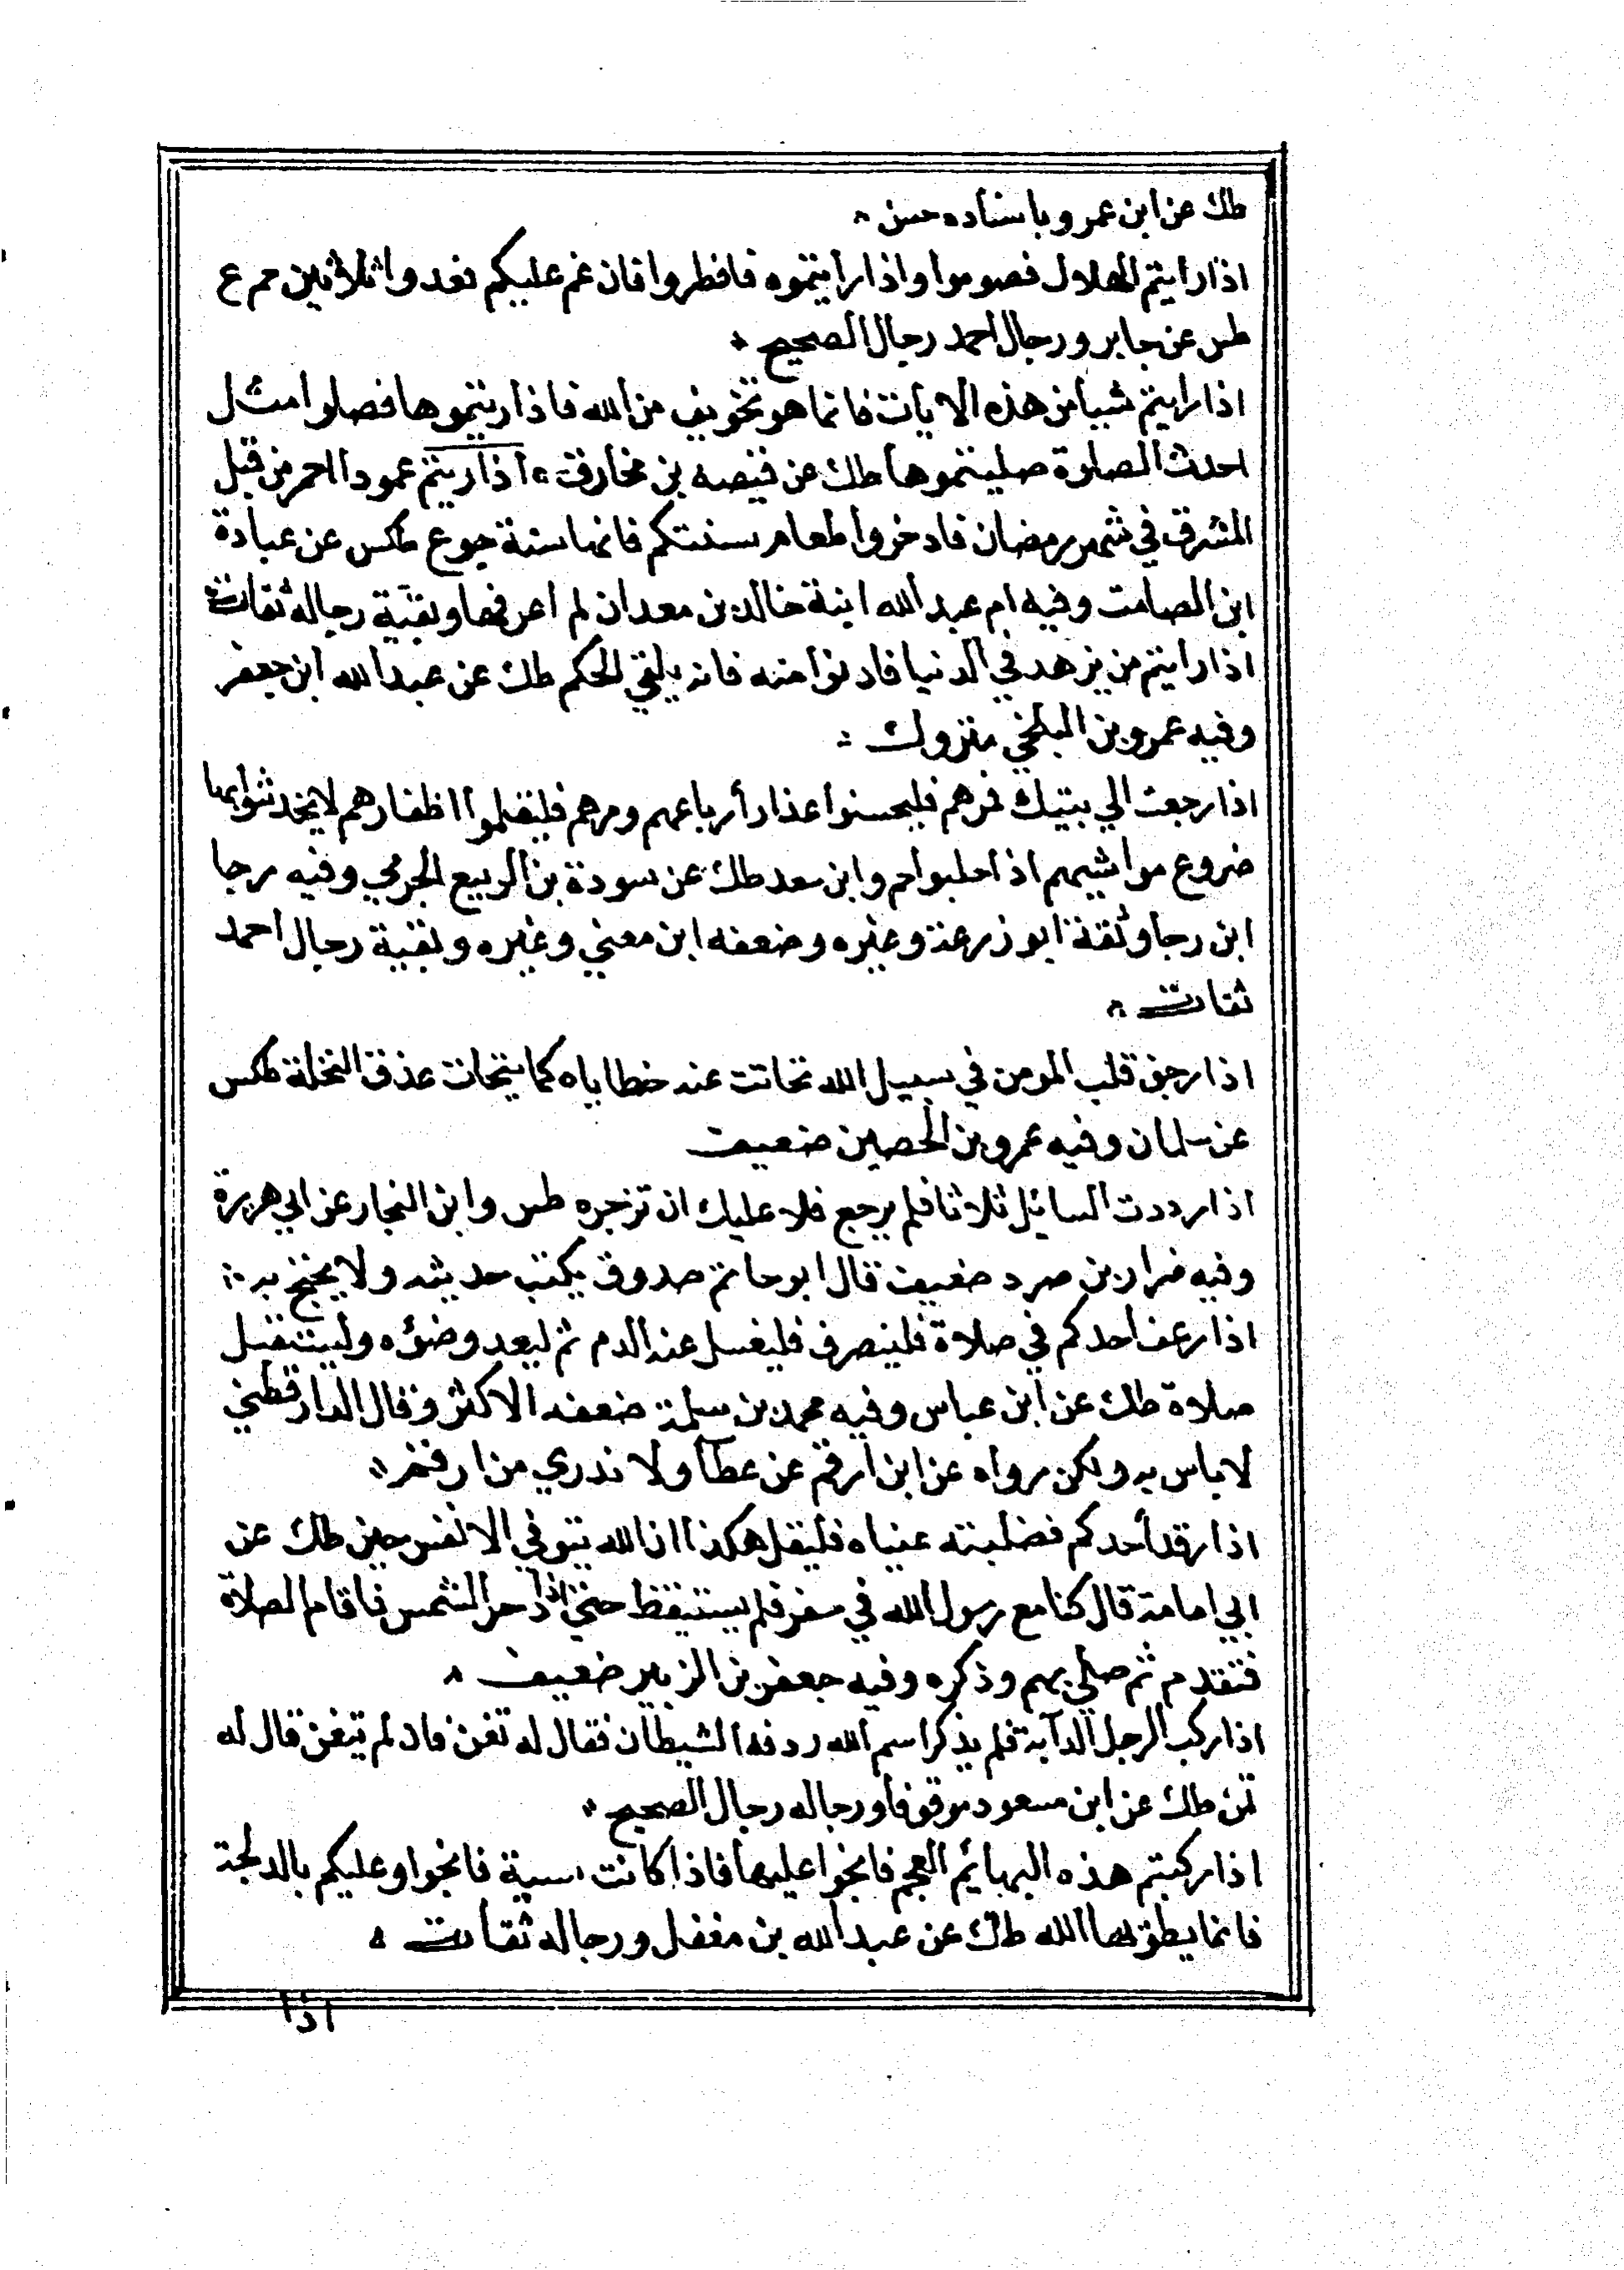 طك عن ابن عمر وباسناده حسن
اذا رايتم الهلال فصوموا واذا رايتموه فافطروا فان غم عليكم فعدوا ثلاثين حم ع
طس عن جابر ورجال احمد رجال الصحيح
اذا رايتم شيا من هذه الايات فانما هو تخويف من الله فاذا ريتموها فصلوا مثل
احدث الصلوة صليتموها طك عن قبيصه بن مخارق اذا ريتم عمودا احمر من قبل
المشرق في شهر رمضان فادخروا طعام سنتكم فانها سنة جوع طكس عن عبادة
ابن الصامت وفيه ام عبد الله ابنة خالد بن معدان لم اعرفها وبقية رجاله ثقات
اذا رايتم من يزهد في الدنيا فادنوا منه فانه يلقي الحكم طك عن عبد الله ابن جعفر
وفيه عمرو بن البلخي متروك
اذا رجعت الي بيتيك فمرهم فليحسنوا عذارأ رباعهم ومرهم فليقلموا اظفارهم لا يخدشوا بها
ضروع مواشيهم اذا حلبوا حم وابن سعد طك عن سودة بن الربيع الجرمي وفيه مرجا
ابن رجا وثقة ابو زرعة وغيره وضعفه ابن معني وغيره وبقية رجال احمد
ثقات
اذا رجف قلب المومن في سبيل الله تحاتت عنه خطاياه كما يتحات عذق النخلة طكس
عن سلمان وفيه عمرو بن الحصين ضعيف
اذا رددت السايل ثلاثا فلم يرجع فلا عليك ان تزجره طس وابن النجار عن ابي هريرة
وفيه ضرار بن صرد ضعيف قال ابو حاتم صدوق يكتب حديثه ولا يحتج به
اذا رعف احدكم في صلاة فلينصرف فليغسل عنه الدم ثم ليعد وضوه وليستقبل
صلاة طك عن ابن عباس وفيه محمد بن سلمة ضعفه الاكثر وقال الدارقطني
لا باس به ولكن رواه عن ابن ارقم عن عطأ ولا ندري من ارقم
اذا رقد أحدكم فغلبته عيناه فليقل هكذا ان الله يتوفي الانفس حين طك عن
ابي امامة قال كنا مع رسول الله في سفر فلم يستيقظ حتي اذا حر الشمس فاقام الصلاة
فتقدم ثم صلي بهم وذكره وفيه جعفر بن الزبير ضعيف
اذا ركب الرجل الدابة فلم يذكر اسم الله ردفه الشيطان فقال له تغن فان لم تيغن قال له
تمن طك عن ابن مسعود موقوفا ورجاله رجال الصحيح
اذا ركبتم هذه البهايم العجم فانجوا عليها فاذا كانت سنية فانجوا وعليكم بالدلجة
فانما يطويها الله طك عن عبد الله بن مغفل ورجاله ثقات
اذا